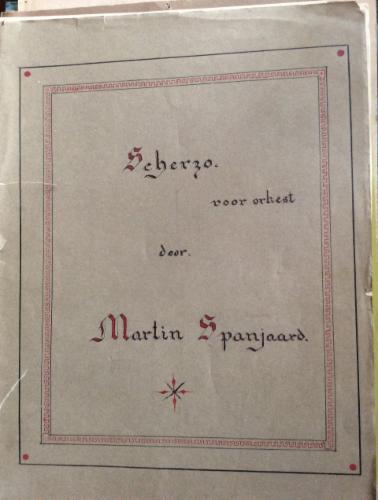 Scherzo.
voor orkest
door.
Martin Spanjaard.